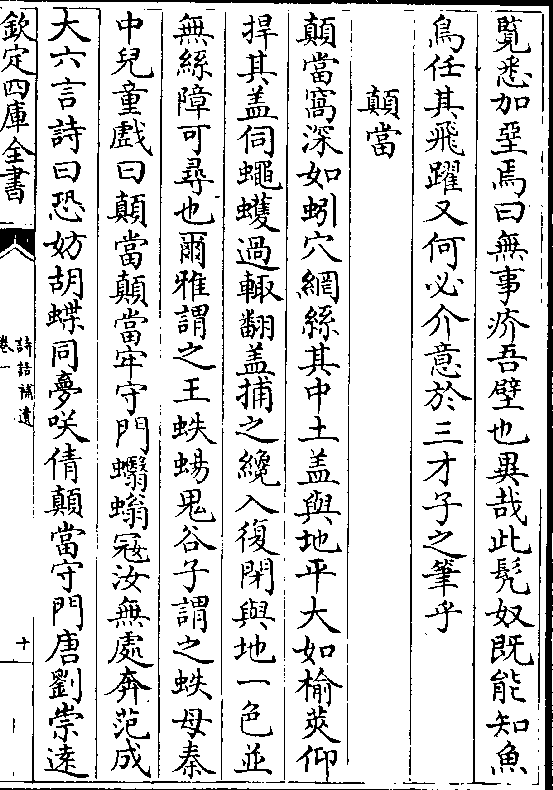 覧悉加堊焉曰無事疥吾壁也異哉此髠奴既能知魚
鳥任其飛躍又何必介意於三才子之筆乎
顛當
顛當窩深如蚓穴網絲其中土盖與地平大如榆莢仰
捍其盖伺蠅蠖過輙翻盖捕之纔入復閉與地一色並
無絲障可尋也爾雅謂之王蛈蜴鬼谷子謂之蛈母秦
中兒童戲曰顛當顛當牢守門蠮螉冦汝無處奔范成
大六言詩曰恐妨胡蝶同夢咲倩顛當守門唐劉崇逺
欽定四庫全書
詩話補遺
卷一
十